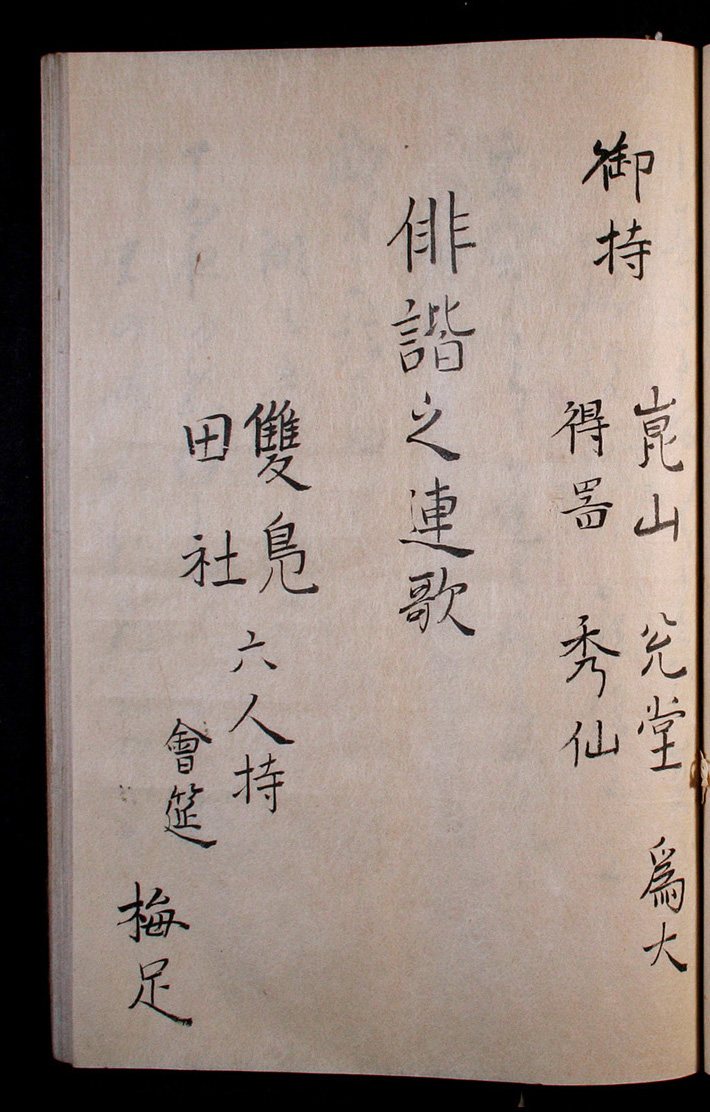 御持
崑山 兊堂 爲大
得器 秀仙
俳諧之連歌
雙鳧 六人持
田社 會筵
梅足